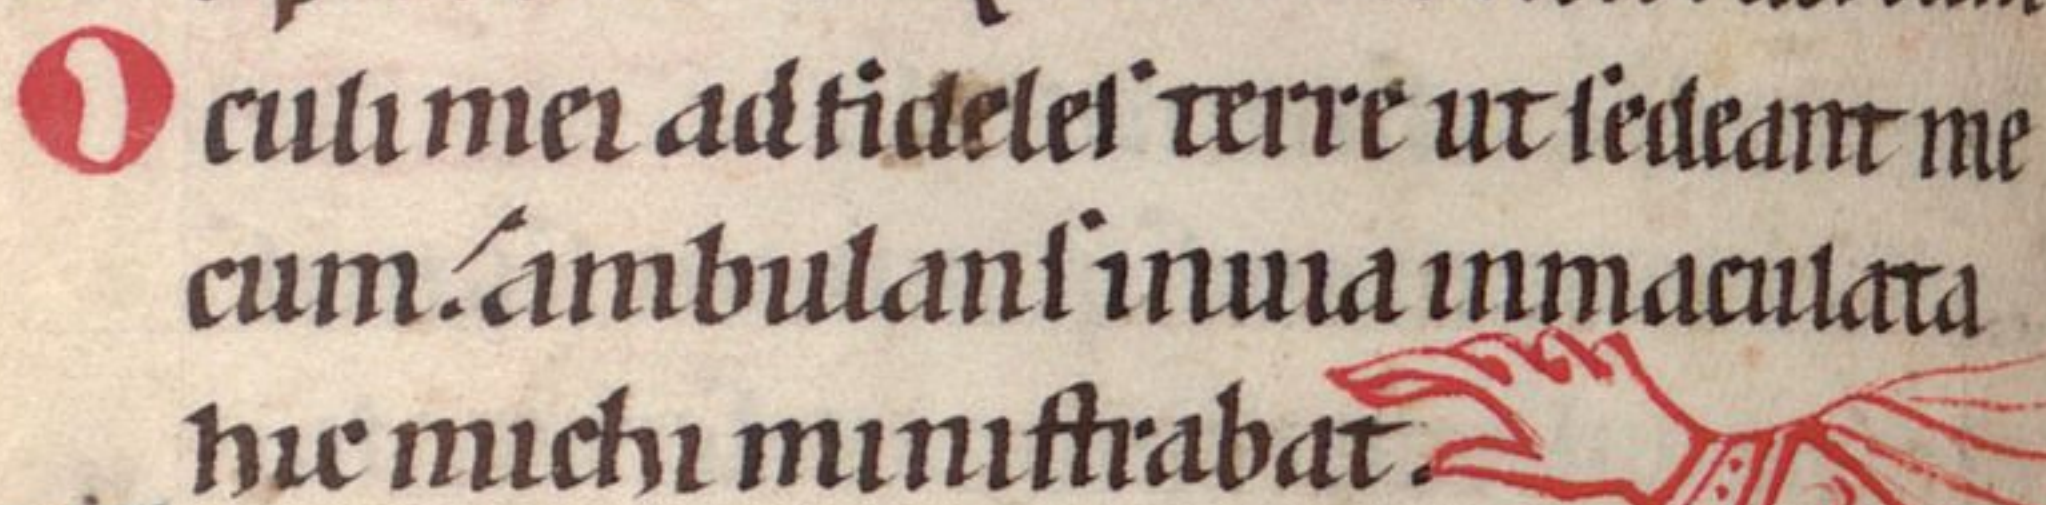 Oculi mei ad fideles terre ut sedeant me
cum: ambulans in uia inmaculata
hic michi ministrabat.